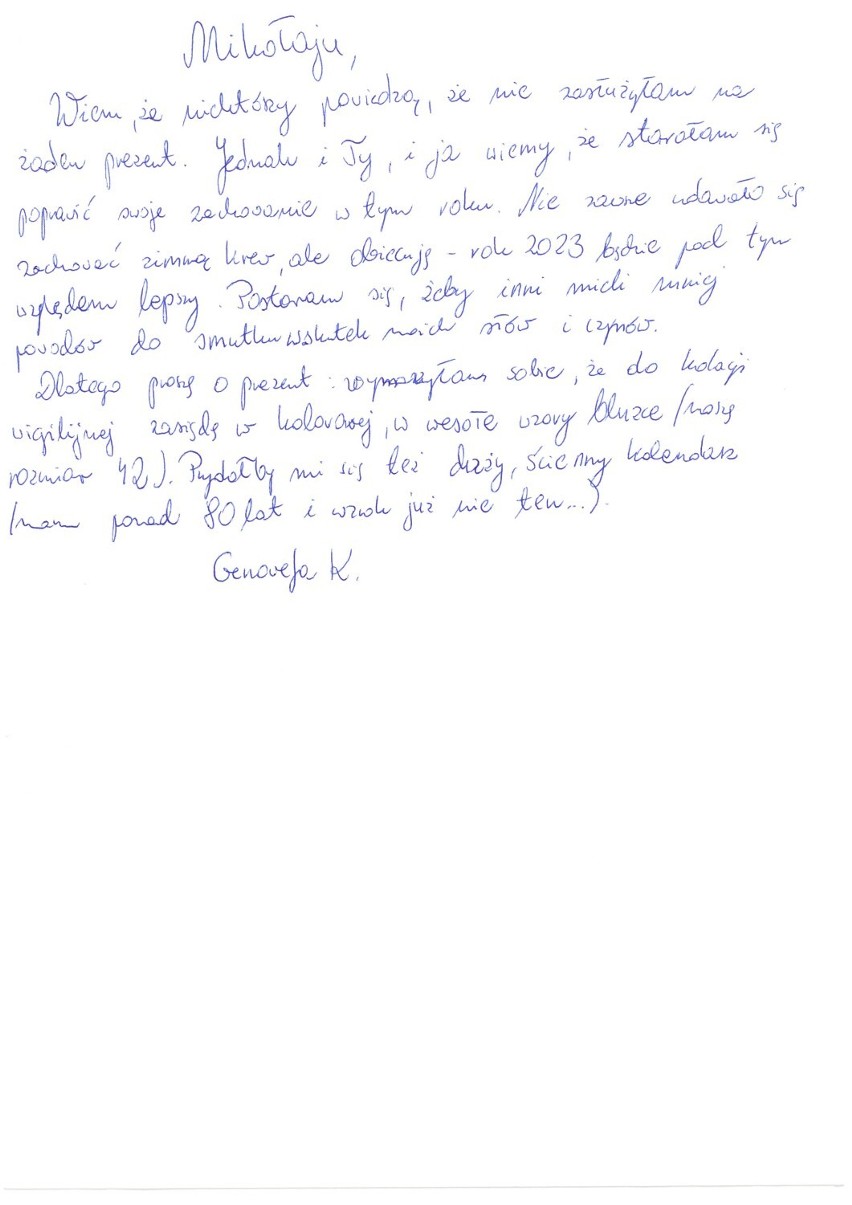 Mikołaju,
Wiem, że niektórzy powiedzą, że nie zasłużyłam na
żaden prezent. Jednak i Ty, i ja wiemy, że starałam się
poprawić swoje zachowanie w tym roku. Nie zawsze udawało się
zachować zimną krew, ale obiecuję - rok 2023 będzie pod tym
względem lepszy. Postaram się, żeby inni mieli mniej
powodów do smutku wskutek moich słów i czynów.
Dlatego proszę o prezent: wymarzyłam sobie, że do kolacji
wigilijnej zasiędę w kolorowej, w wesołe wzory bluzce /noszę
rozmiar 42). Przydałby mi się też duży, ścienny kalendarz
/mam ponad 80 lat i wzrok już nie ten...).
Genowefa K.